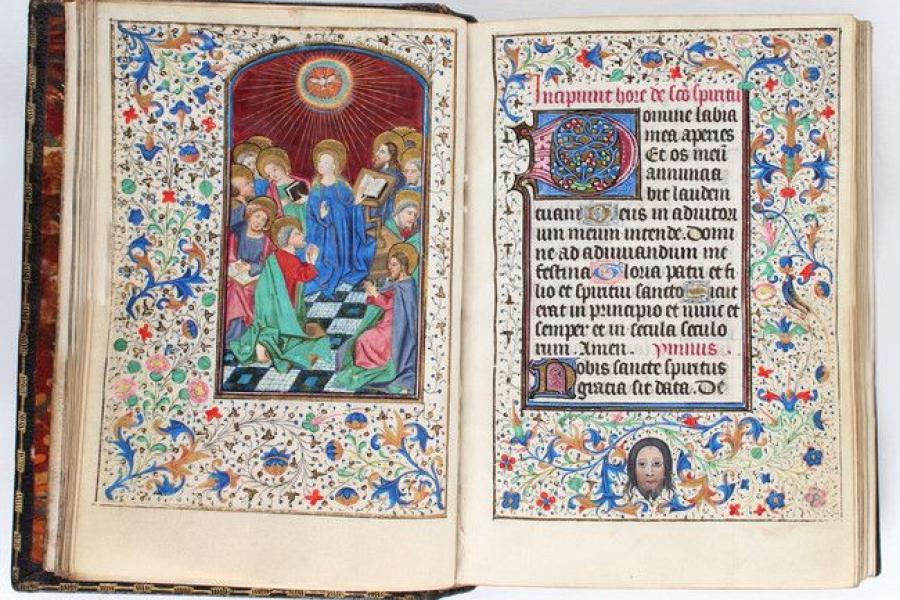 Incipiunt hore de sco spiritu
Domine labia
mea aperies
Et os meu
annuncia
bit laudem
tuam Deus in adiutori
um meum intende. Domi
ne ad adiuuandum me
festina Gloria patri et fi
lio et spiritui sancto Sicut
erat in principio et nunc et
semper et in secula seculo
rum. Amen. ymnus
Nobis sancte spiritus
gratia sit data. De